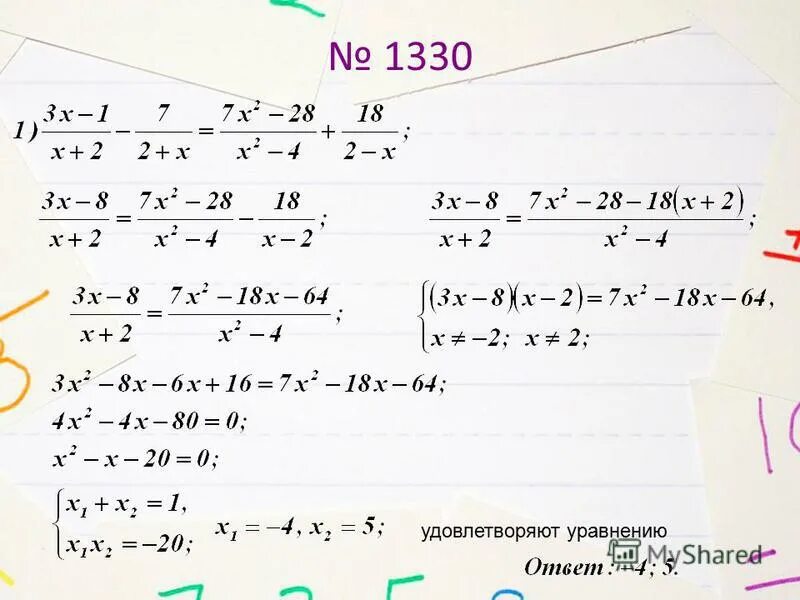 № 1330
1) (3x − 1)/(x + 2) − 7/(2 + x) = (7x² − 28)/(x² − 4) + 18/(2 − x);
(3x − 8)/(x + 2) = (7x² − 28)/(x² − 4) − 18/(x − 2); (3x − 8)/(x + 2) = (7x² − 28 − 18(x + 2))/(x² − 4);
(3x − 8)/(x + 2) = (7x² − 18x − 64)/(x² − 4); { (3x − 8)(x − 2) = 7x² − 18x − 64,
x ≠ −2; x ≠ 2;
3x² − 8x − 6x + 16 = 7x² − 18x − 64;
4x² − 4x − 80 = 0;
x² − x − 20 = 0;
{ x₁ + x₂ = 1,
x₁x₂ = −20; x₁ = −4, x₂ = 5; удовлетворяют уравнению
Ответ: −4; 5.
MyShared